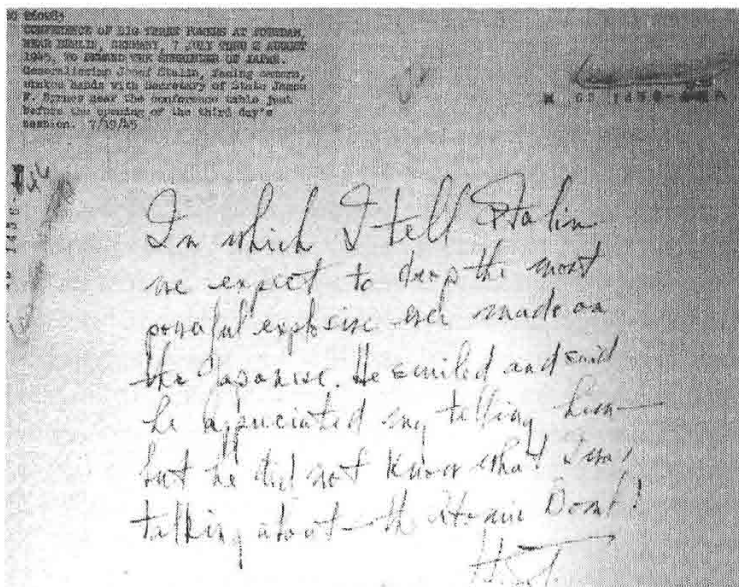 CONFERENCE OF BIG THREE POWERS AT POTSDAM,
NEAR BERLIN, GERMANY, 7 JULY THRU 2 AUGUST
1945, TO DEMAND THE SURRENDER OF JAPAN.
Generalissimo Josef Stalin, facing camera,
shakes hands with Secretary of State James
F. Byrnes near the conference table just
before the opening of the third day's
session. 7/19/45
In which I tell Stalin
we expect to drop the most
powerful explosive ever made on
the Japanese. He smiled and said
he appreciated my telling him—
but he did not know what I was
talking about—the Atomic Bomb!
H.S.T.